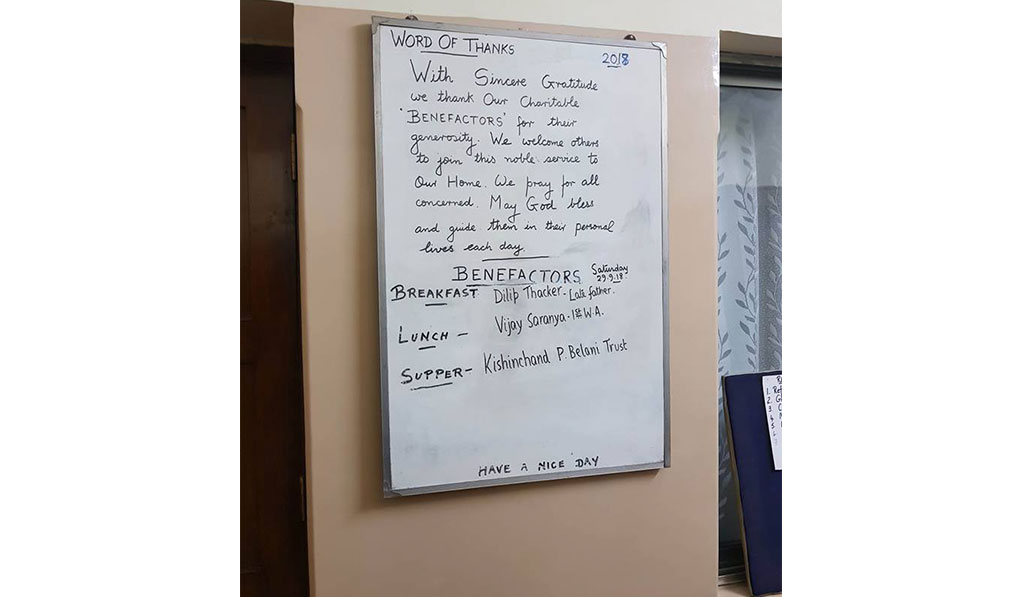 WORD OF THANKS
2018
With Sincere Gratitude
we thank Our Charitable
'BENEFACTORS' for their
generosity. We welcome others
to join this noble service to
Our Home. We pray for all
concerned. May God bless
and guide them in their personal
lives each day
BENEFACTORS Saturday
29.9.18
BREAKFAST Dilip Thacker - Late father.
LUNCH - Vijay Saranya - 1st W.A.
SUPPER - Kishinchand P. Belani Trust
HAVE A NICE DAY
1.
2.
3.
4.
5.